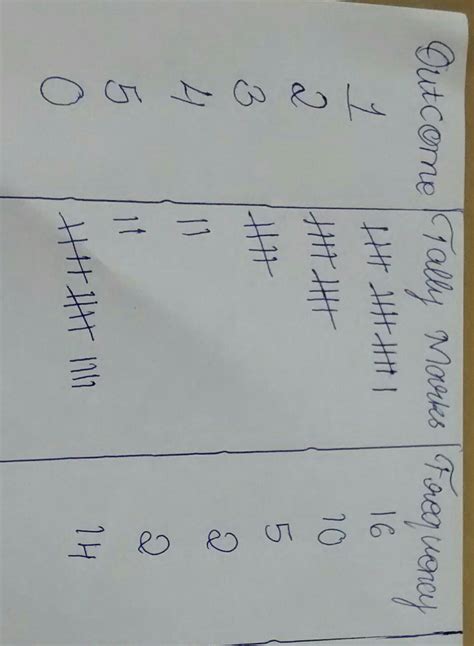 Outcome Tally Marks Frequency
1 𝍸 𝍸 𝍸 | 16
2 𝍸 𝍸 10
3 𝍸 5
4 || 2
5 || 2
0 𝍸 𝍸 |||| 14